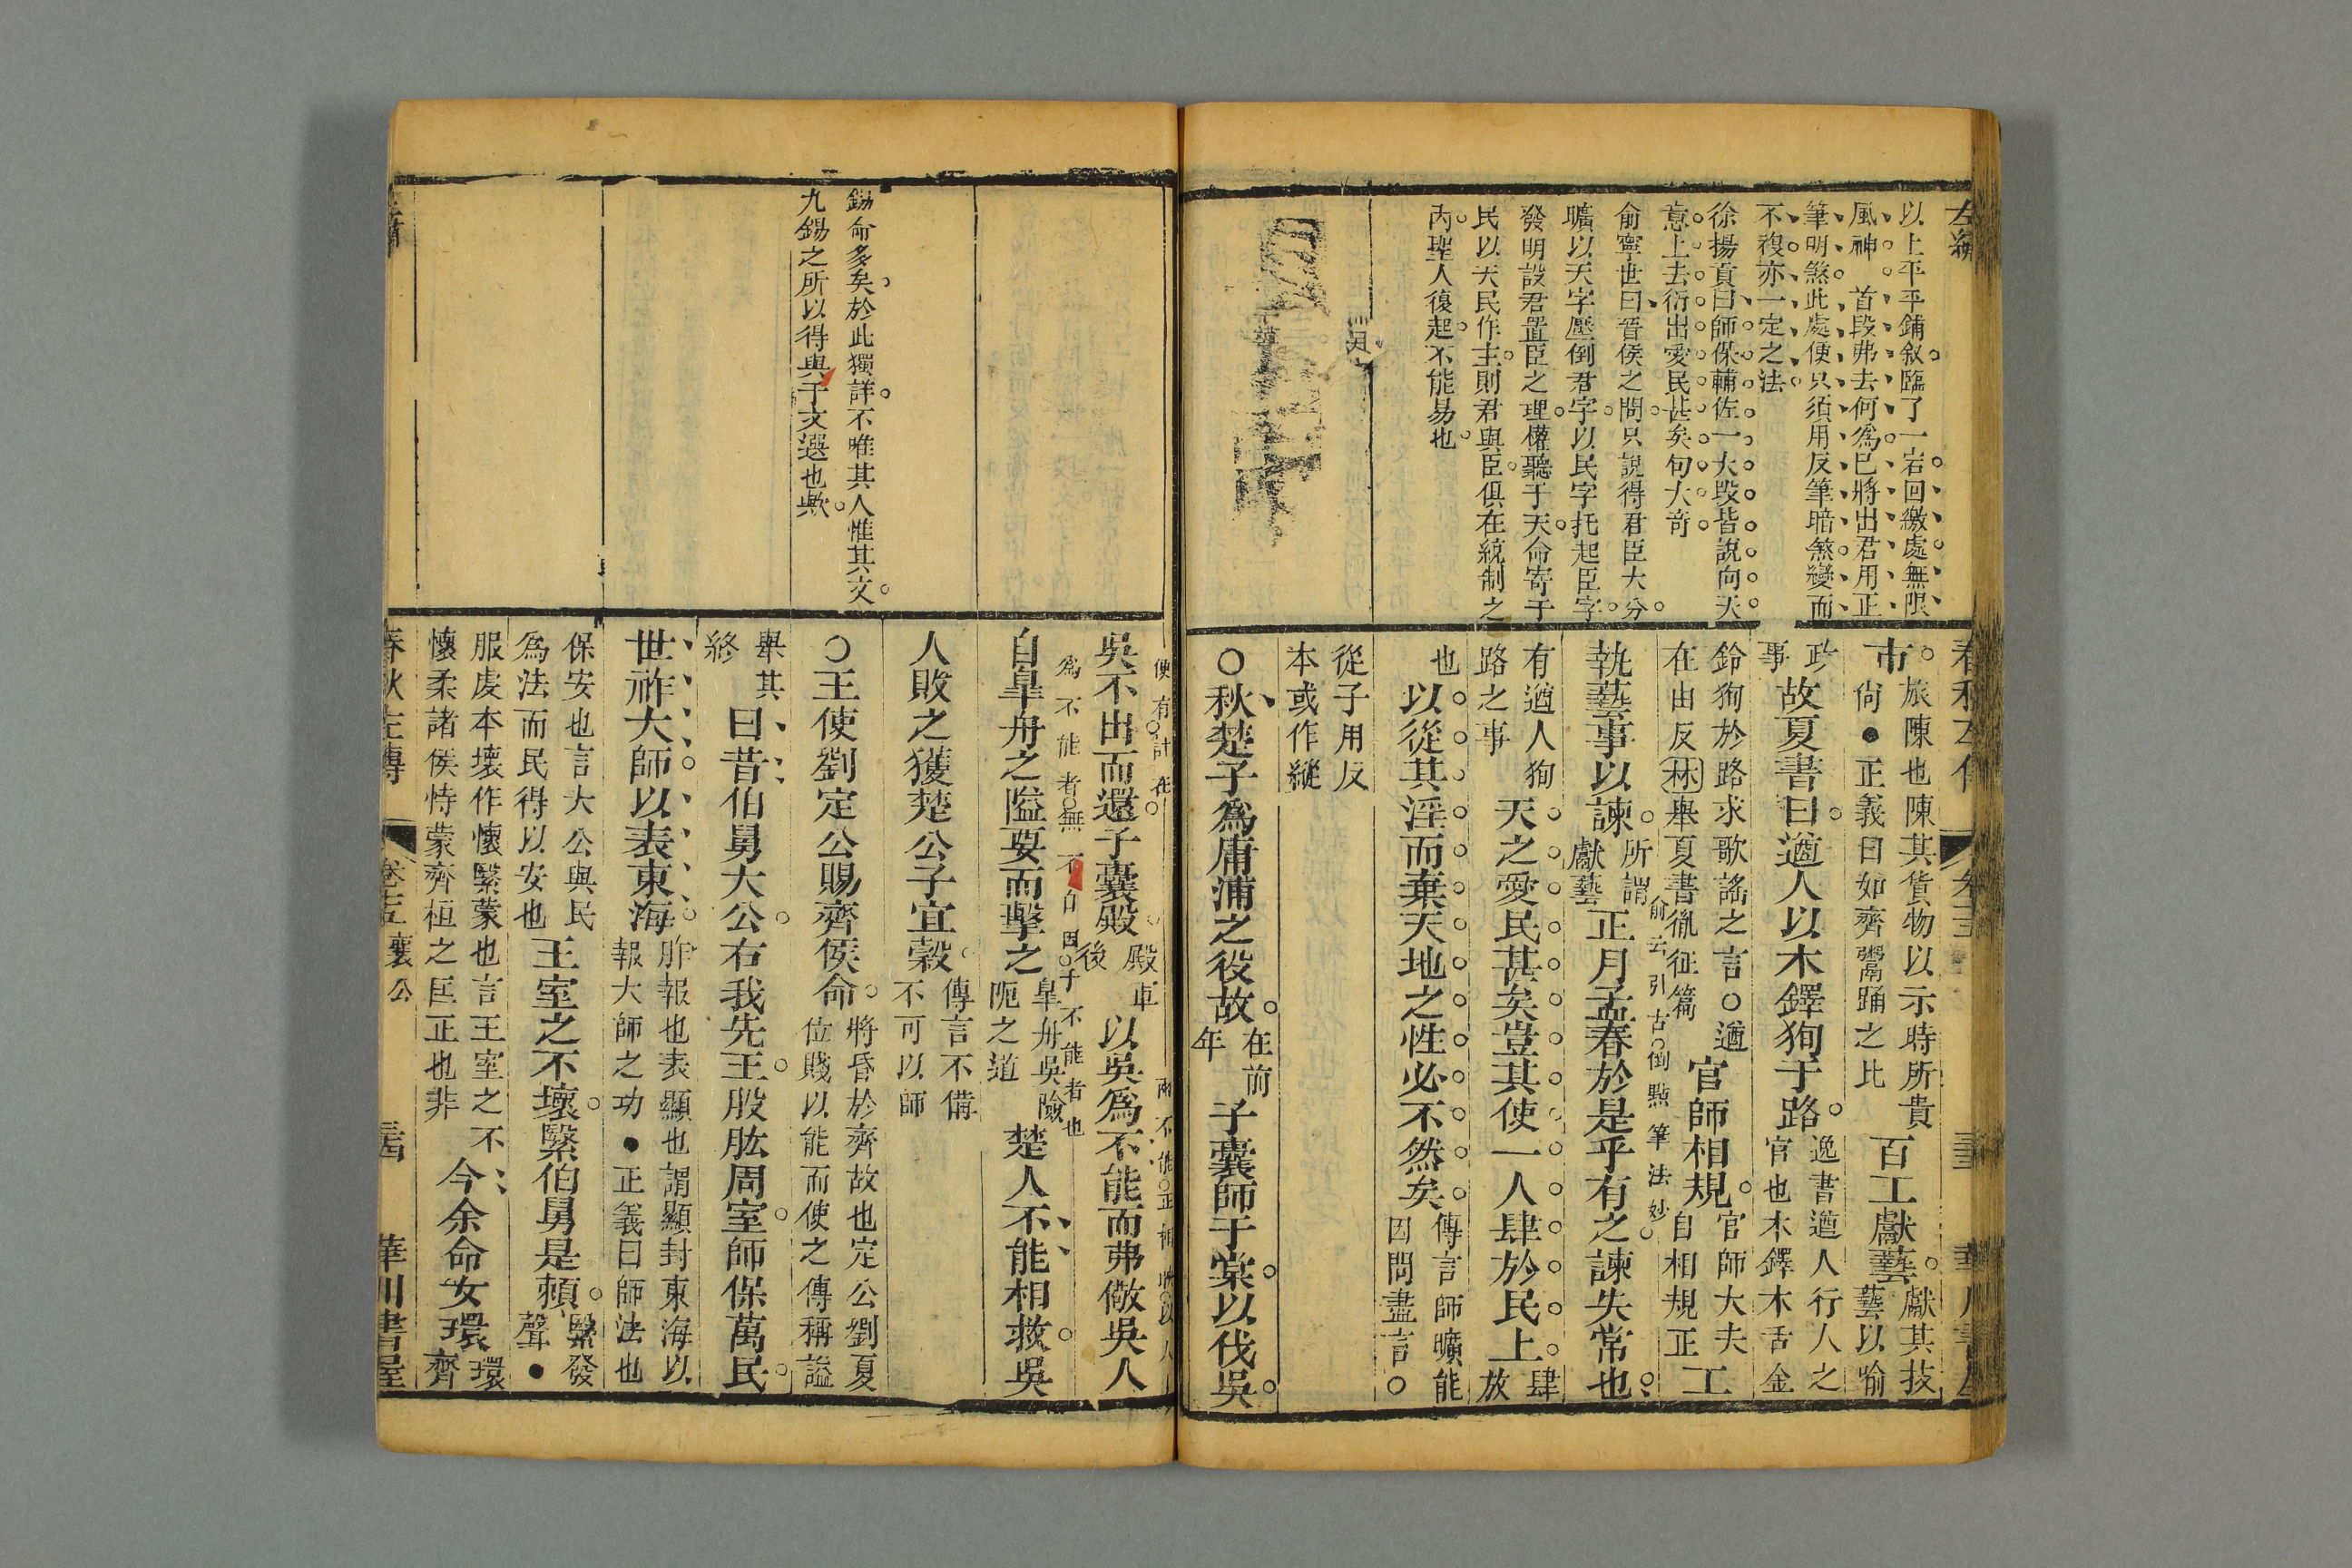 以上平平鋪敘臨了一宕回繳處無限
風神 首段弗去何為已將出君用正
筆明煞此處便只須用反筆暗煞變而
不複亦一定之法
徐揚貢曰師保輔佐一大段皆說向天
意上去衍出愛民甚矣句大奇
俞寧世曰晉侯之問只說得君臣大分
曠以天字壓倒君字以民字托起臣字
發明設君置臣之理權聽于天命寄于
民以天民作主則君與臣俱在統制之
內聖人復起不能易也
市旅陳也陳其貨物以示時所貴
尚●正義曰如齊鬻踊之比百工獻藝獻其技
藝以喻
政事故夏書曰遒人以木鐸狥于路逸書遒人行人之
官也木鐸木舌金
鈴狥於路求歌謠之言○遒
在由反林舉夏書胤征篇官師相規官師大夫
自相規正工
執藝事以諫所謂
獻藝正月孟春於是乎有之諫失常也
俞云引古倒點筆法妙
有遒人狥
路之事天之愛民甚矣豈其使一人肆於民上肆
放
也以從其淫而棄天地之性必不然矣傳言師曠能
因問盡言○
從子用反
本或作縱
○秋楚子為庸浦之役故在前
年子囊師于棠以伐吳
吳不出而還子囊殿殿軍
後以吳為不能而弗儆吳人
自皐舟之隘要而擊之皐舟吳險
阨之道楚人不能相救吳
人敗之獲楚公子宜穀傳言不備
不可以師
○王使劉定公賜齊侯命將昏於齊故也定公劉夏
位賤以能而使之傳稱諡
舉其
終曰昔伯舅大公右我先王股肱周室師保萬民
世祚大師以表東海胙報也表顯也謂顯封東海以
報大師之功●正義曰師法也
保安也言大公與民
為法而民得以安也王室之不壞繄伯舅是賴繄發
聲●
服虔本壞作懷繄蒙也言王室之不
懷柔諸侯恃蒙齊桓之匡正也非今余命女環環
齊
錫命多矣於此獨詳不唯其人惟其文
九錫之所以得與于文選也歟
春秋左傳 卷十五 襄公 華川書屋